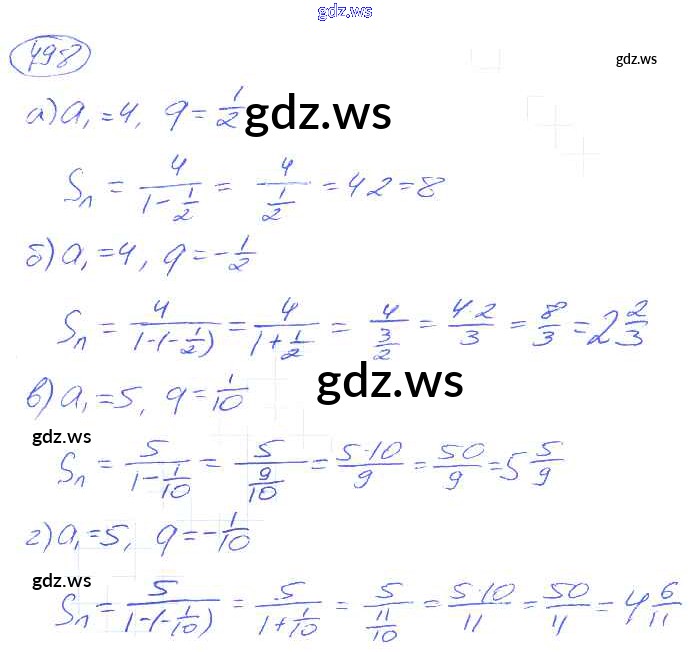 gdz.ws
498
gdz.ws
а) a₁ = 4, q = 1/2
gdz.ws
Sₙ = 4/(1-1/2) = 4/(1/2) = 4·2 = 8
б) a₁ = 4, q = -1/2
Sₙ = 4/(1-(-1/2)) = 4/(1+1/2) = 4/(3/2) = 4·2/3 = 8/3 = 2 2/3
gdz.ws
в) a₁ = 5, q = 1/10
gdz.ws
Sₙ = 5/(1-1/10) = 5/(9/10) = 5·10/9 = 50/9 = 5 5/9
г) a₁ = 5, q = -1/10
gdz.ws
gdz.ws
Sₙ = 5/(1-(-1/10)) = 5/(1+1/10) = 5/(11/10) = 5·10/11 = 50/11 = 4 6/11